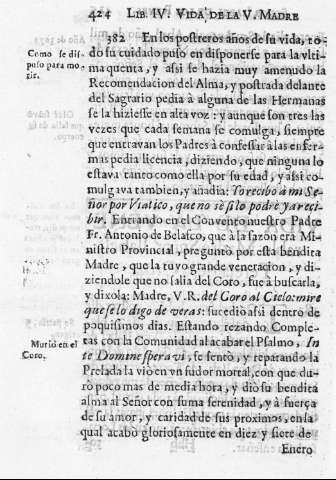 424 LIB. IV. VIDA, DE LA V. MADRE
382 En los postreros años de su vida, to-
do su cuidado puso en disponerse para la vlti-
ma quenta, y assi se hazia muy amenudo la
Recomendacion del Alma, y postrada delante
del Sagrario pedia à alguna de las Hermanas
se la hiziesse en alta voz: y aunque son tres las
vezes que cada semana se comulga, siempre
que entravan los Padres à confessar à las enfer-
mas pedia licencia, diziendo, que ninguna lo
estava tanto como ella por su edad, y assi co-
mulgava tambien, y añadia: Yo recibo à mi Se-
ñor por Viatico, que no sè si lo podrè ya reci-
bir. Entrando en el Convento nuestro Padre
Fr. Antonio de Belasco, que à la sazon era Mi-
nistro Provincial, preguntò por esta bendita
Madre, que la tuvo grande veneracion, y di-
ziendole que no salia del Coro, fue à buscarla,
y dixola: Madre, V. R. del Coro al Cielo: mire
que se lo digo de veras: sucediò assi dentro de
poquissimos dias. Estando rezando Comple-
tas con la Comunidad al acabar el Psalmo, In
te Domine speravi, se sentò, y reparando la
Prelada la viò en vn sudor mortal, con que du-
rò poco mas de media hora, y diò su bendita
alma al Señor con suma serenidad, y à fuerça
de su amor, y caridad de sus proximos, en la
qual acabò gloriosamente en diez y siete de
Enero
Como se dis-
puso para mo-
rir.
Muriò en el
Coro.